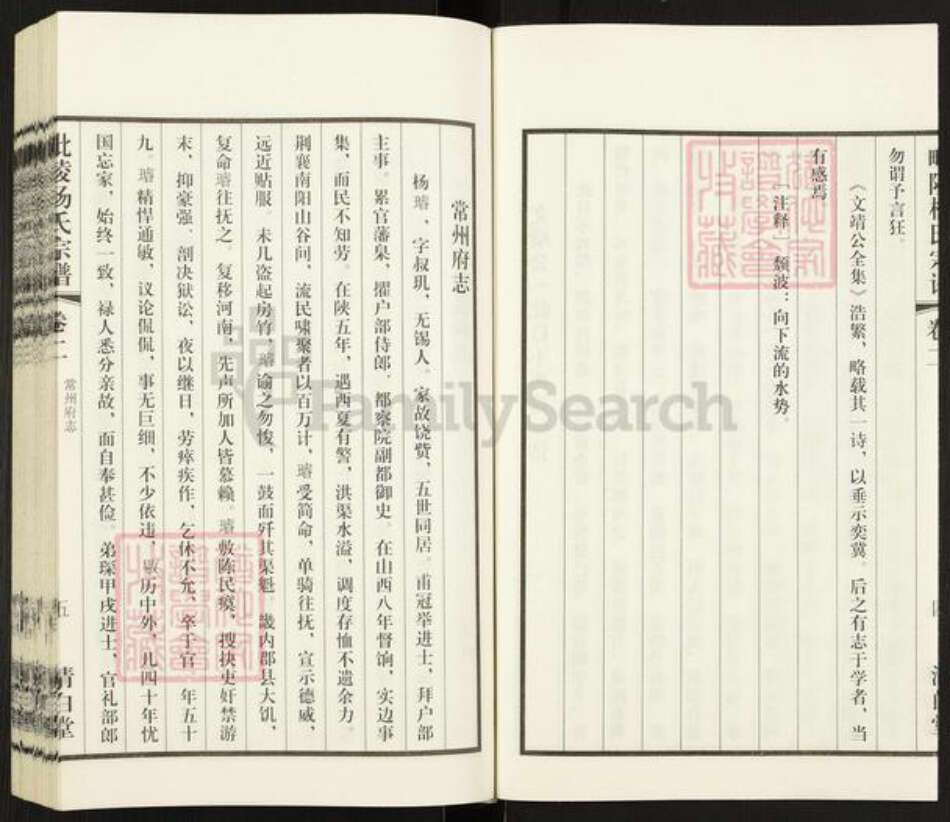 勿谓予言狂。
《文靖公全集》浩繁，略载其一诗，以垂示奕冀。后之有志于学者，当
有感焉
「注释」颓波：向下流的水势。
常州府志
杨璿，字叔玑，无锡人。家故饶赀，五世同居。甫冠举进士，拜户部
主事。累官藩臬，擢户部侍郎。都察院副都御史。在山西八年督饷，实边事
集，而民不知劳。在陕五年，遇西夏有警，洪渠水溢，调度存恤不遗余力。
荆襄南阳山谷间，流民啸聚者以百万计，璿受简命，单骑往抚，宣示德威，
远近贴服。未几盗起房竹，璿谕之勿悛，一鼓而歼其渠魁。畿内郡县大饥，
复命璿往抚之。复移河南，先声所加人皆慕赖。璿敷陈民瘼，搜抉吏奸禁游
末，抑豪强。剖决狱讼，夜以继日，劳瘁疾作，乞休不允，卒于官。年五十
九。璿精悍通敏，议论侃侃，事无巨细，不少依违，敭历中外，几四十年忧
国忘家，始终一致，禄人悉分亲故，而自奉甚俭。弟琛甲戌进士，官礼部郎
毗陵杨氏宗谱 卷二 常州府志 五 清白堂
FamilySearch